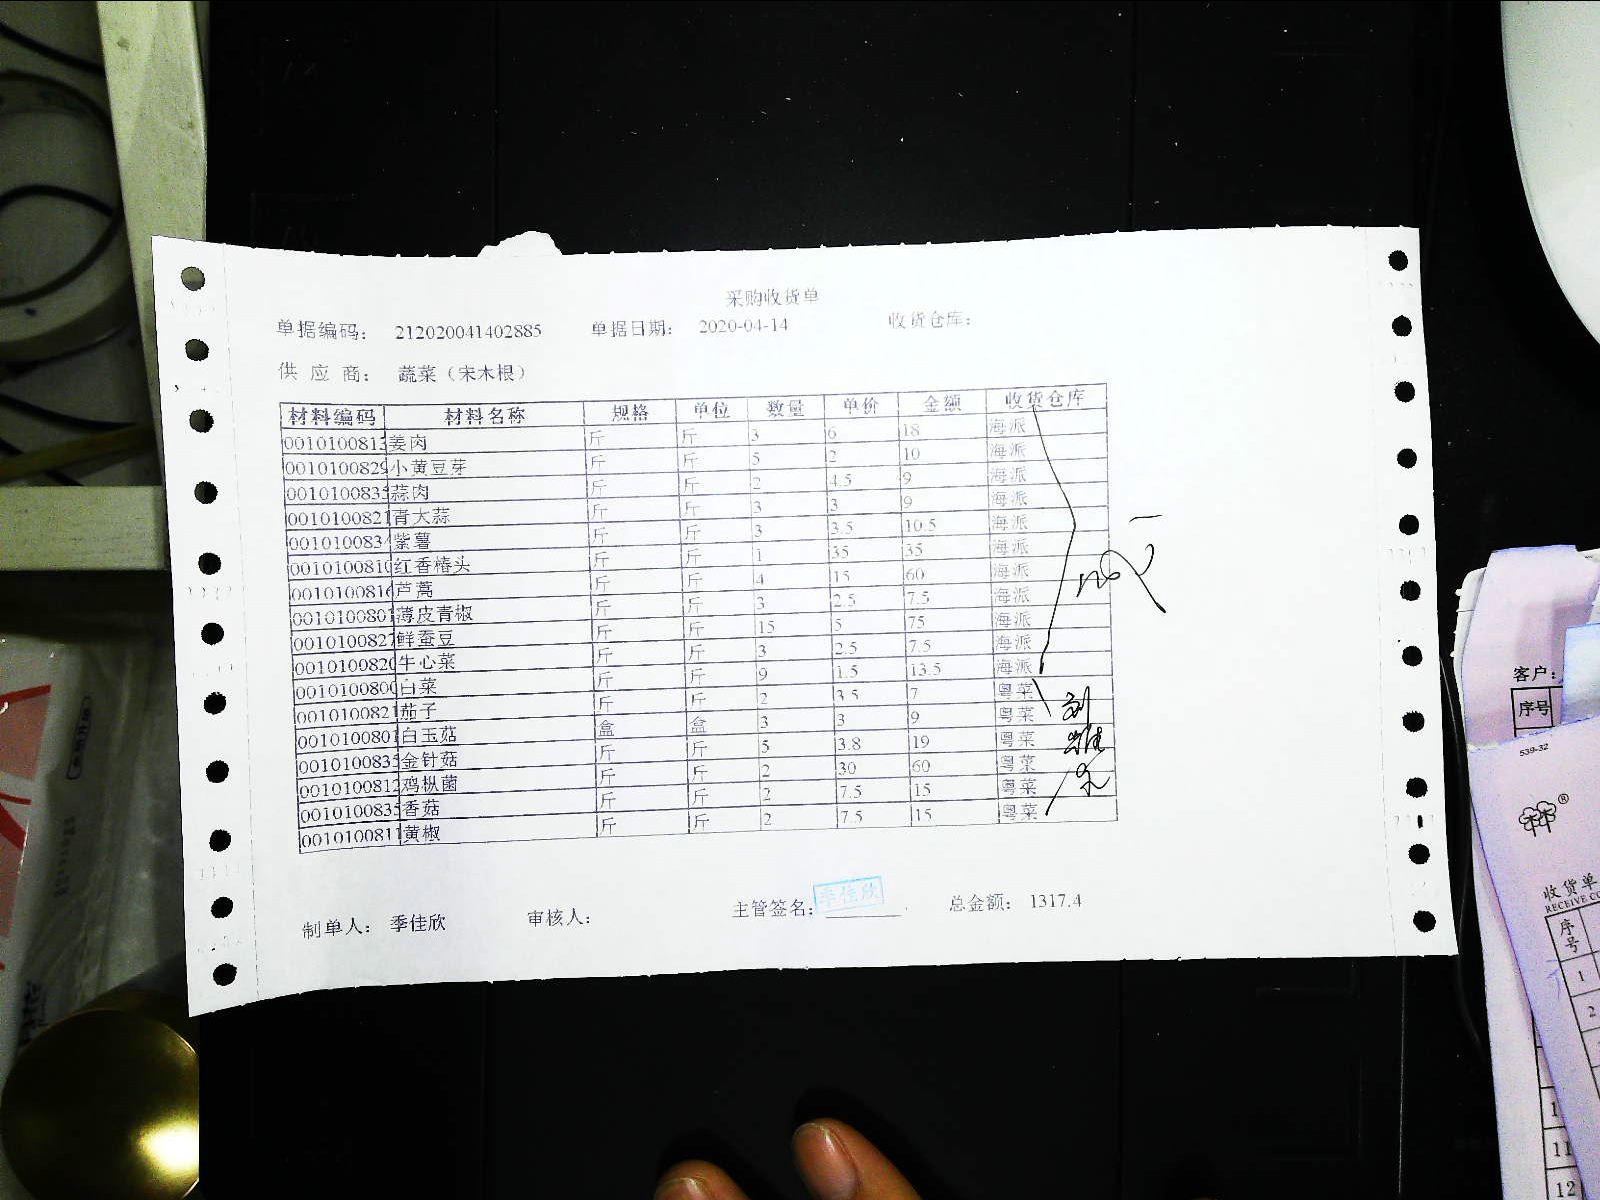 采购收货单
单据编码: 212020041402885 单据日期: 2020-04-14 收货仓库:
供 应 商: 蔬菜（宋木根）
材料编码 材料名称 规格 单位 数量 单价 金额 收货仓库
0010100813 姜肉 斤 斤 3 6 18 海派
0010100829 小黄豆芽 斤 斤 5 2 10 海派
001010083 蒜肉 斤 斤 2 4.5 9 海派
001010082 青大蒜 斤 斤 3 3 9 海派
001010083 紫薯 斤 斤 3 3.5 10.5 海派
001010081 红香椿头 斤 斤 1 35 35 海派
001010081 芦蒿 斤 斤 4 15 60 海派
001010080 薄皮青椒 斤 斤 3 2.5 7.5 海派
001010082 鲜蚕豆 斤 斤 15 5 75 海派
001010082 牛心菜 斤 斤 3 2.5 7.5 海派
001010080 白菜 斤 斤 9 1.5 13.5 海派
001010082 茄子 斤 斤 2 3.5 7 粤菜
001010080 白玉菇 盒 盒 3 3 9 粤菜
001010083 金针菇 斤 斤 5 3.8 19 粤菜
001010081 鸡枞菌 斤 斤 2 30 60 粤菜
001010083 香菇 斤 斤 2 7.5 15 粤菜
001010081 黄椒 斤 斤 2 7.5 15 粤菜
制单人: 季佳欣 审核人: 主管签名: 季佳欣 总金额: 1317.4
客户:
序号
539-32
收货单
序号
1
2
11
12